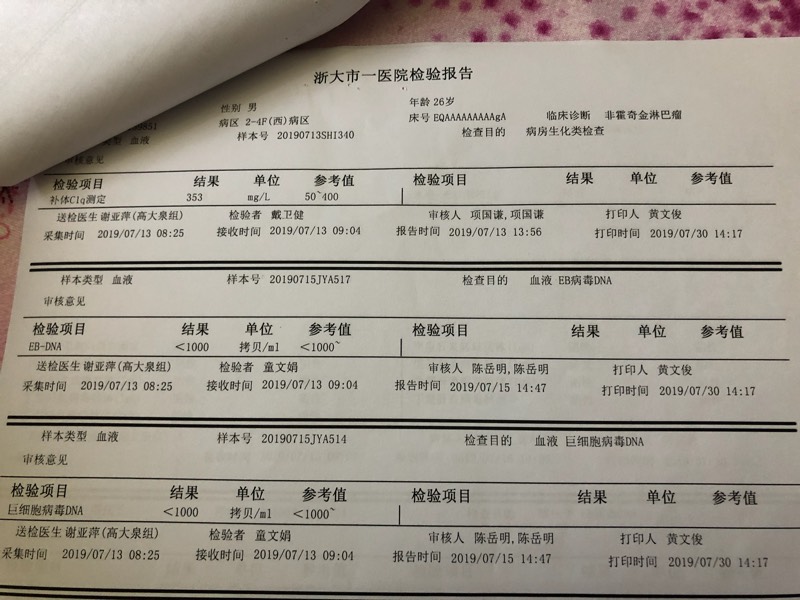 浙大市一医院检验报告
性别 男 年龄 26岁
病区 2-4F(西)病区 床号 EQAAAAAAAAAgA 临床诊断 非霍奇金淋巴瘤
类型 血液 样本号 20190713SHI340 检查目的 病房生化类检查
审核意见
检验项目 结果 单位 参考值 结果 单位 参考值
补体C1q测定 353 mg/L 50~400
送检医生 谢亚萍(高大泉组) 检验者 戴卫健 审核人 项国谦,项国谦 打印人 黄文俊
采集时间 2019/07/13 08:25 接收时间 2019/07/13 09:04 报告时间 2019/07/13 13:56 打印时间 2019/07/30 14:17
样本类型 血液 样本号 20190715JYA517 检查目的 血液 EB病毒DNA
审核意见
检验项目 结果 单位 参考值 检验项目 结果 单位 参考值
EB-DNA <1000 拷贝/ml <1000~
送检医生 谢亚萍(高大泉组) 检验者 童文娟 审核人 陈岳明,陈岳明 打印人 黄文俊
采集时间 2019/07/13 08:25 接收时间 2019/07/13 09:04 报告时间 2019/07/15 14:47 打印时间 2019/07/30 14:17
样本类型 血液 样本号 20190715JYA514 检查目的 血液 巨细胞病毒DNA
审核意见
检验项目 结果 单位 参考值 检验项目 结果 单位 参考值
巨细胞病毒DNA <1000 拷贝/ml <1000~
送检医生 谢亚萍(高大泉组) 检验者 童文娟 审核人 陈岳明,陈岳明 打印人 黄文俊
采集时间 2019/07/13 08:25 接收时间 2019/07/13 09:04 报告时间 2019/07/15 14:47 打印时间 2019/07/30 14:17